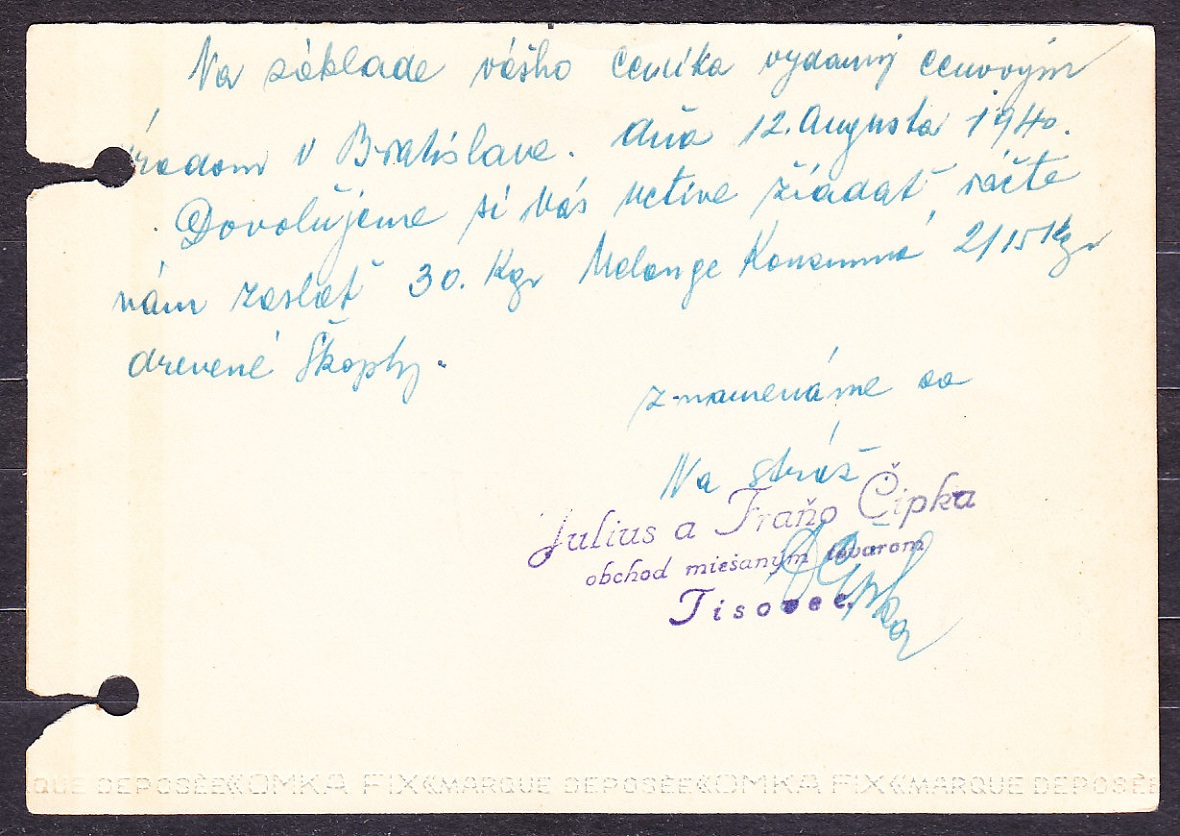 Na základe vášho cenníka vydaný cenovým
úradom v Bratislave. dňa 12. Augusta 1940.
Dovolujeme si Vás uctive žiadať ráčte
nám zaslať 30. Kgr Melange Konzumná 2/15 Kgr
drevené Škopky.
znamenáme sa
Na stráž
Julius a Fraňo Čipka
obchod miešaným tovarom
Tisovec.
Čipka
QUE DEPOSÉE «OMKA FIX« MARQUE DEPOSÉE «OMKA FIX« MARQUE DEPOSÉE